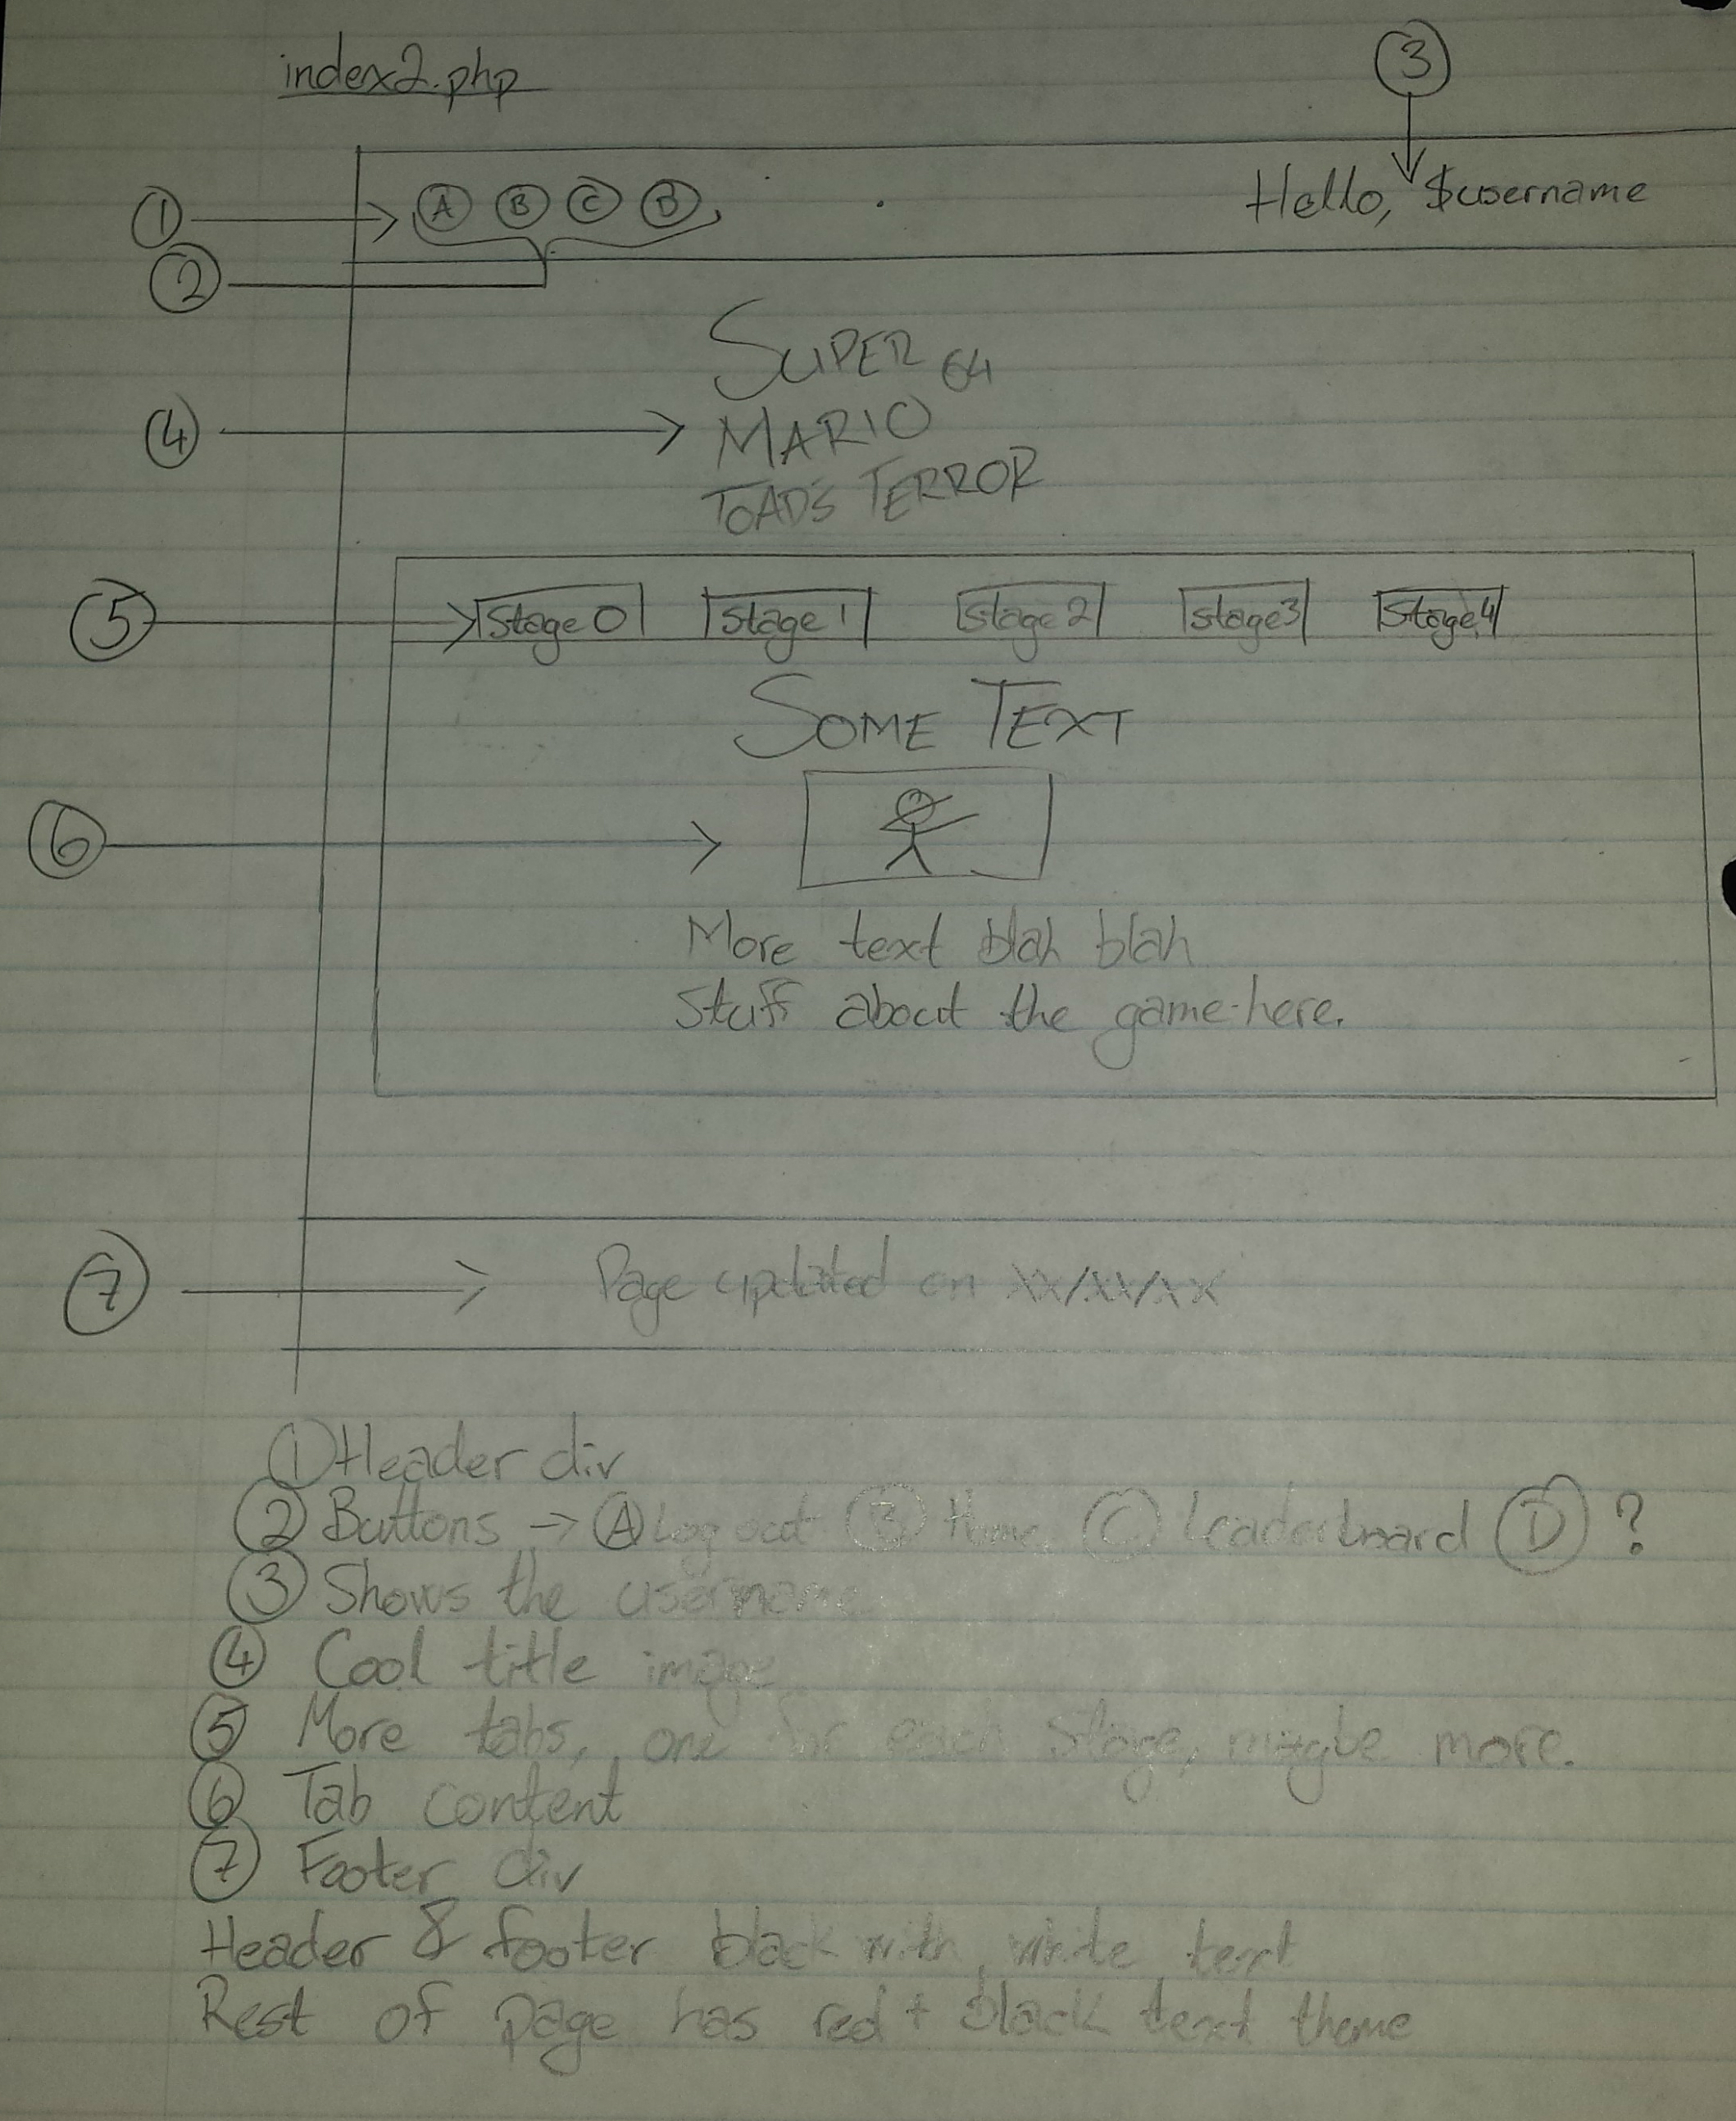 index2.php
3
1
A B C D
Hello, $username
2
SUPER 64
4
MARIO
TOAD'S TERROR
5
Stage 0 Stage 1 Stage 2 Stage3 Stage4
SOME TEXT
6
More text blah blah
Stuff about the game here.
7
Page updated on XX/XX/XX
1 Header div
2 Buttons → A Log out B theme C Leaderboard D ?
3 Shows the username
4 Cool title image
5 More tabs, one for each stage, maybe more.
6 Tab content
7 Footer div
Header & footer black with white text
Rest of page has red + black text theme